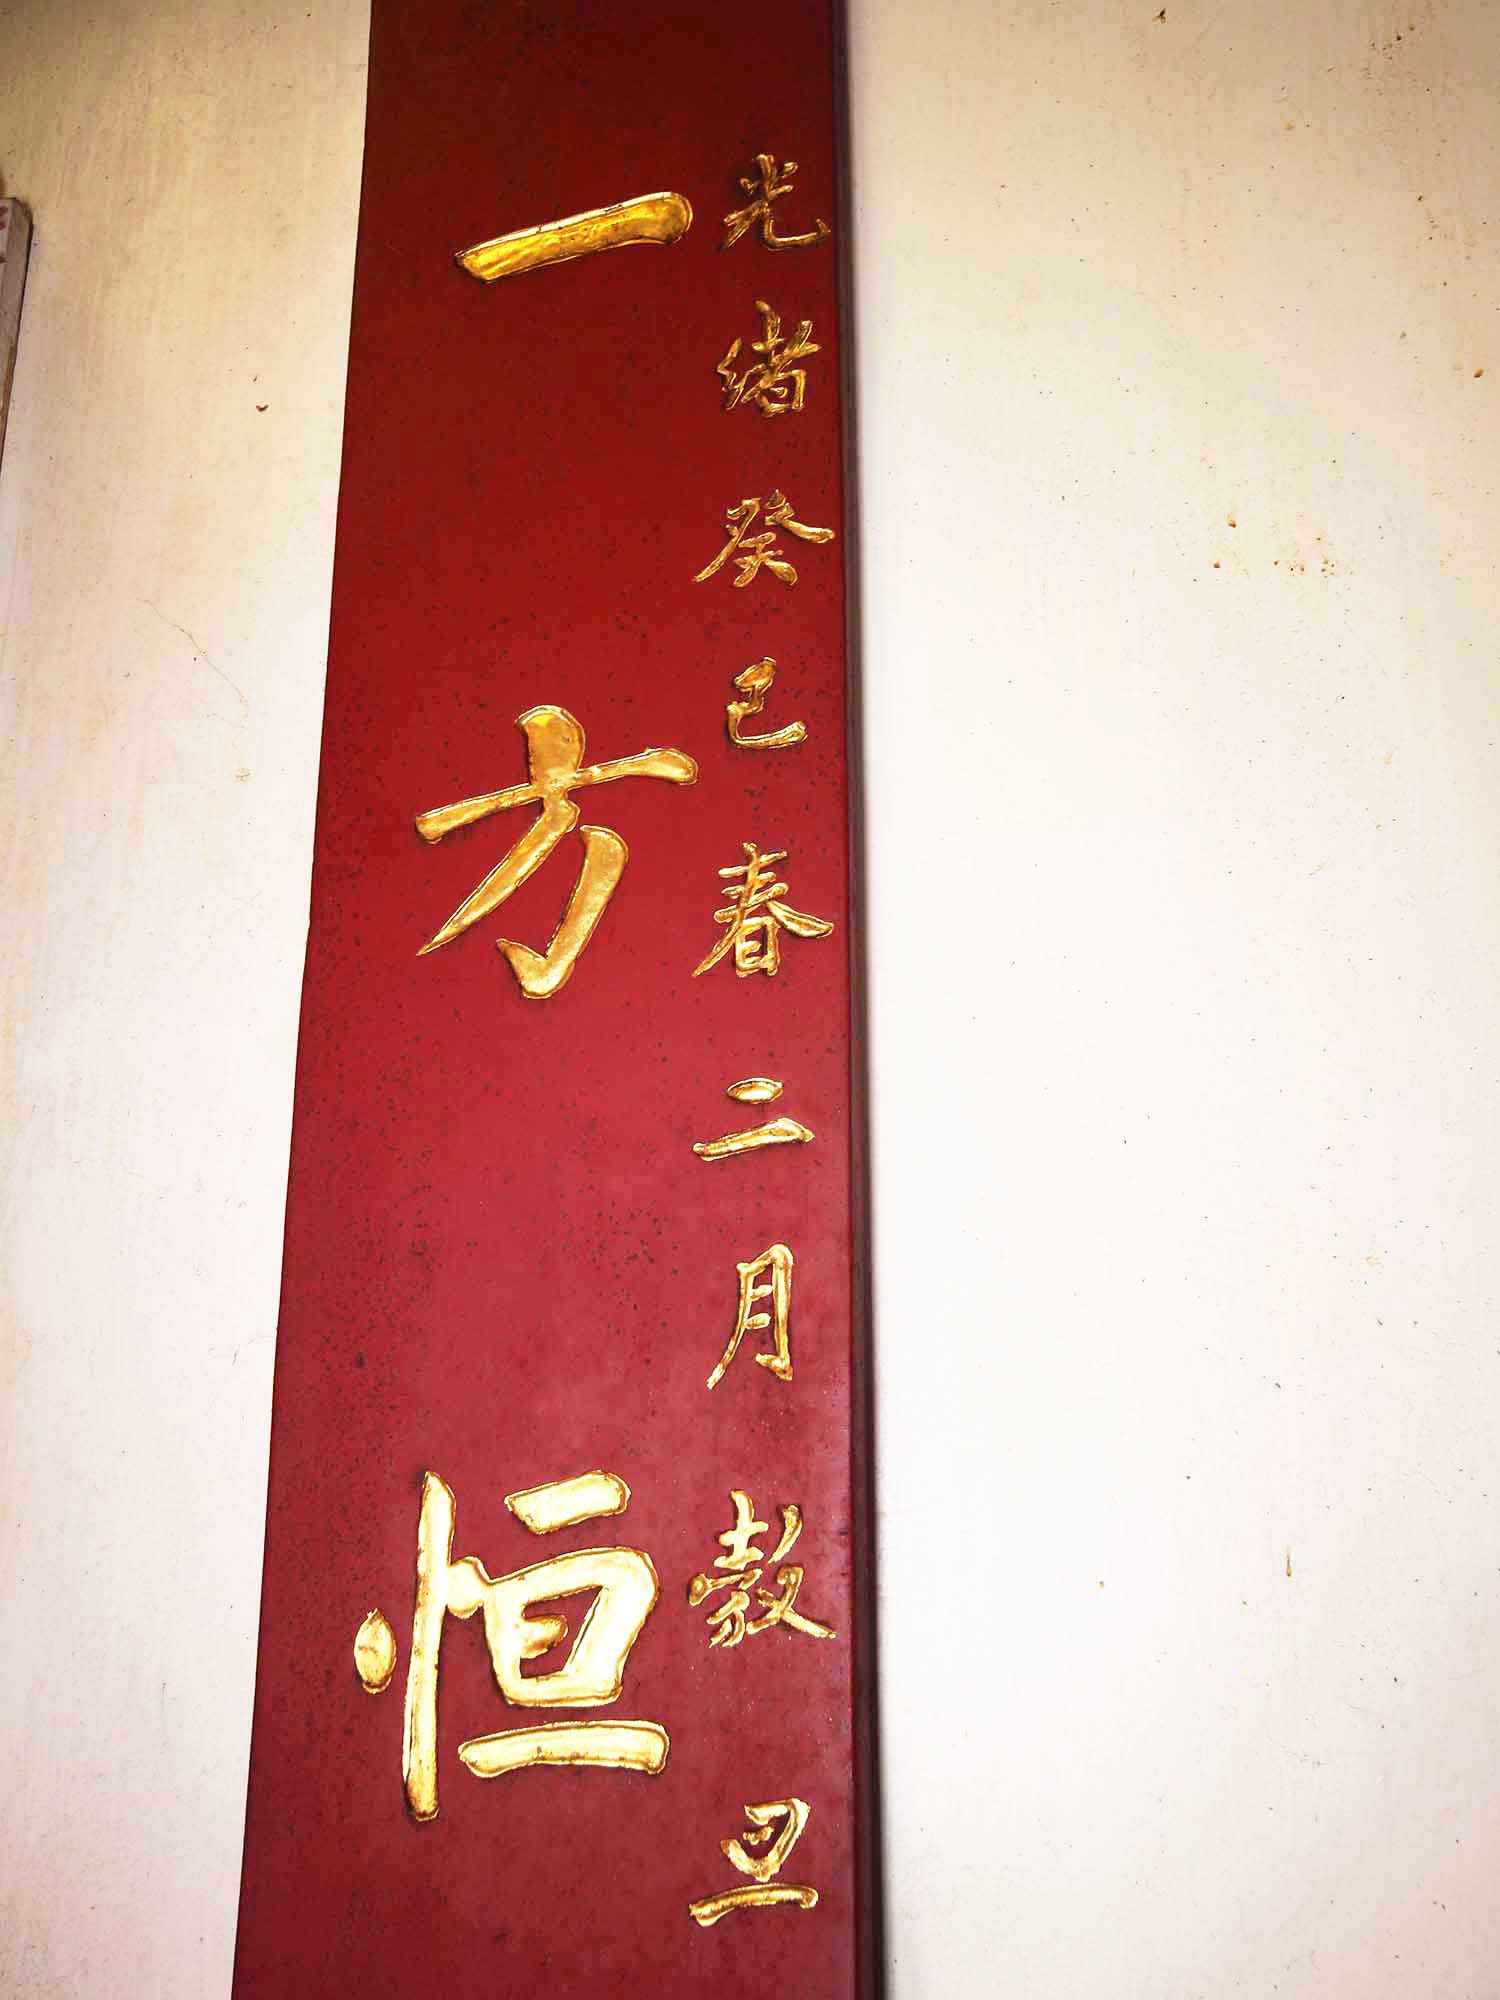 光緒癸巳春二月穀旦
一方恒